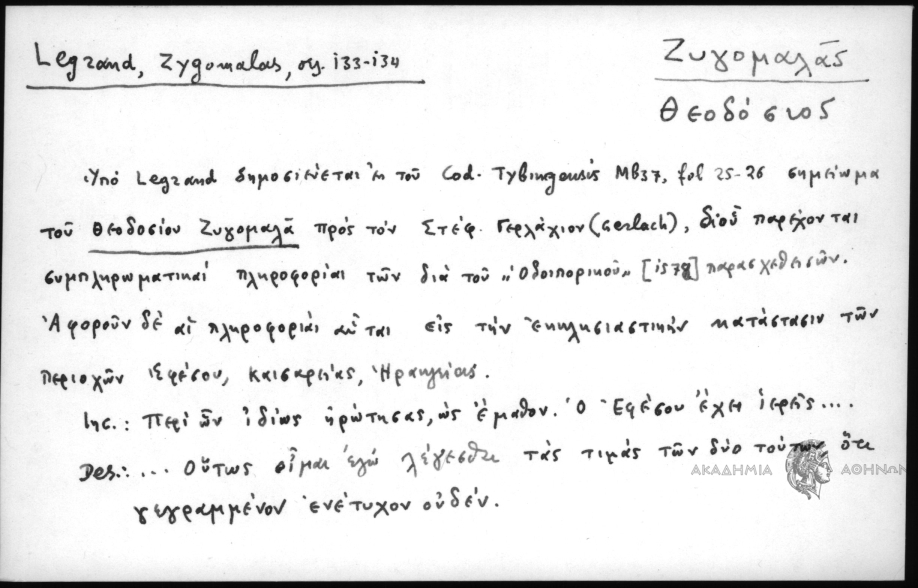 Legrand, Zygomalas, σελ. 133-134
Ζυγομαλᾶς
Θεοδόσιος
Ὑπό Legrand δημοσιεύεται ἐκ τοῦ Cod. Tybingensis Mb37, fol 25-26 σημείωμα
τοῦ Θεοδοσίου Ζυγομαλᾶ πρός τόν Στέφ. Γερλάχιον (Gerlach), δι' οὗ παρέχονται
συμπληρωματικαί πληροφορίαι τῶν διά τοῦ „Ὁδοιπορικοῦ" [1578] παρασχεθεισῶν.
Ἀφοροῦν δέ αἱ πληροφορίαι αὗται εἰς τήν ἐκκλησιαστικήν κατάστασιν τῶν
περιοχῶν Ἐφέσου, Καισαρείας, Ἡρακλείας.
Inc.: Περί ὧν ἰδίως ἠρώτησας, ὡς ἔμαθον. Ὁ Ἐφέσου ἔχει ἱερεῖς ....
Des.: ... Οὕτως οἶμαι ἐγώ λέγεσθαι τάς τιμάς τῶν δύο τούτων ὅτι
γεγραμμένον ἐνέτυχον οὐδέν.
ΑΚΑΔΗΜΙΑ ΑΘΗΝΩΝ